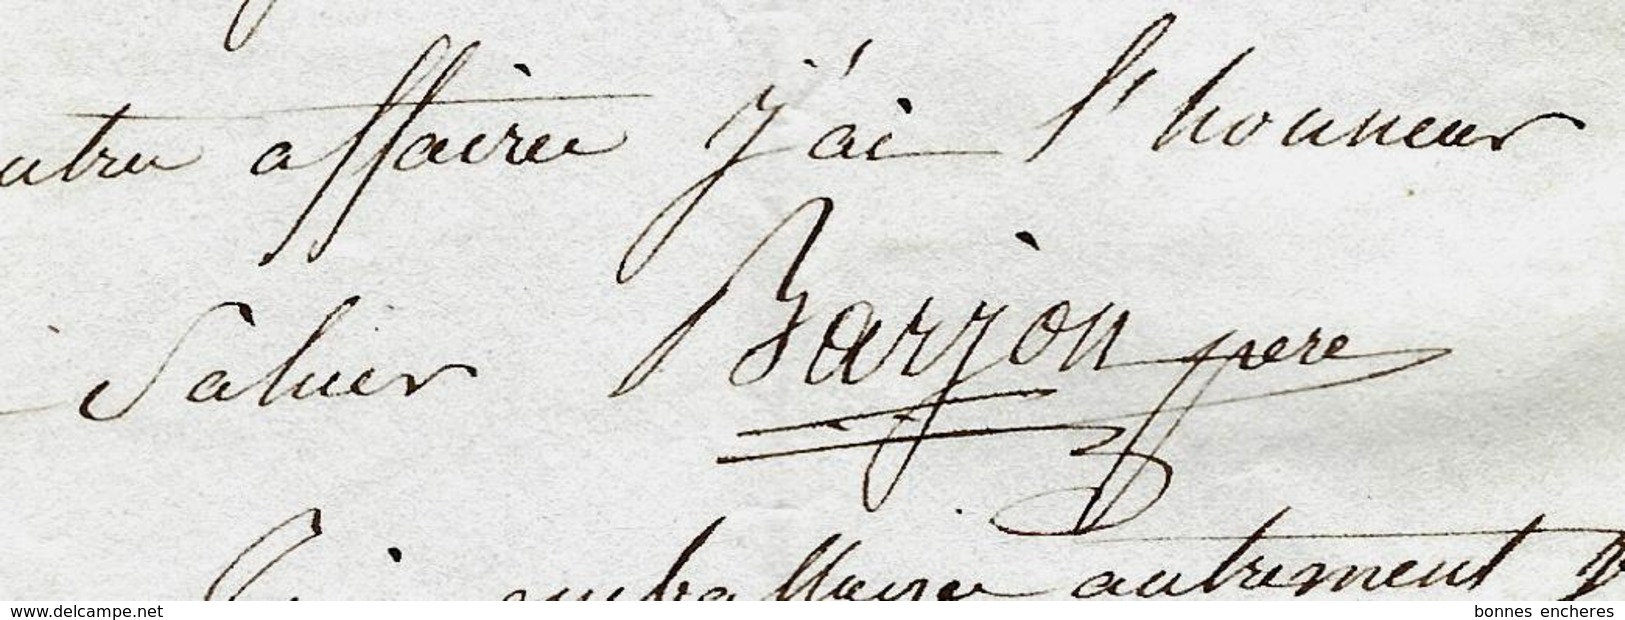 autre affaire j'ai l'honneur
Saluer Barjon pere
autrement
www.delcampe.net bonnes encheres